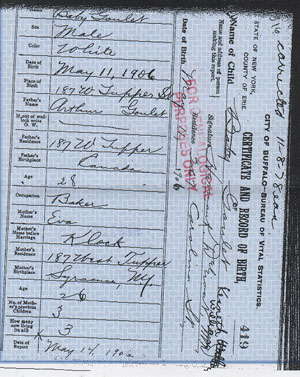 Name Baby Goulet
Sex Male
Color White
Date of Birth May 11, 1906
Place of Birth 187 W Tupper St
Father's Name Arthur Goulet
If out of wedlock write O. W.
Father's Residence 187 W Tupper
Father's Birthplace Canada
Age 28
Occupation Baker
Mother's Name Eva
Mother's Name before Marriage Klock
Mother's Residence 187 West Tupper
Mother's Birthplace Syracuse, NY
Age 26
No. of Mother's previous Children 3
How many now living (in all) 3
Date of Report May 14, 1906
corrected 11-8-78
STATE OF NEW YORK,
COUNTY OF ERIE
CITY OF BUFFALO—BUREAU OF VITAL STATISTICS.
CERTIFICATE AND RECORD OF BIRTH,
419
Name of Child Baby Goulet
Name and address of person making this report.
Signature
Residence
Date of Birth May 11 1906
FOR GENEALOGICAL
PURPOSES ONLY